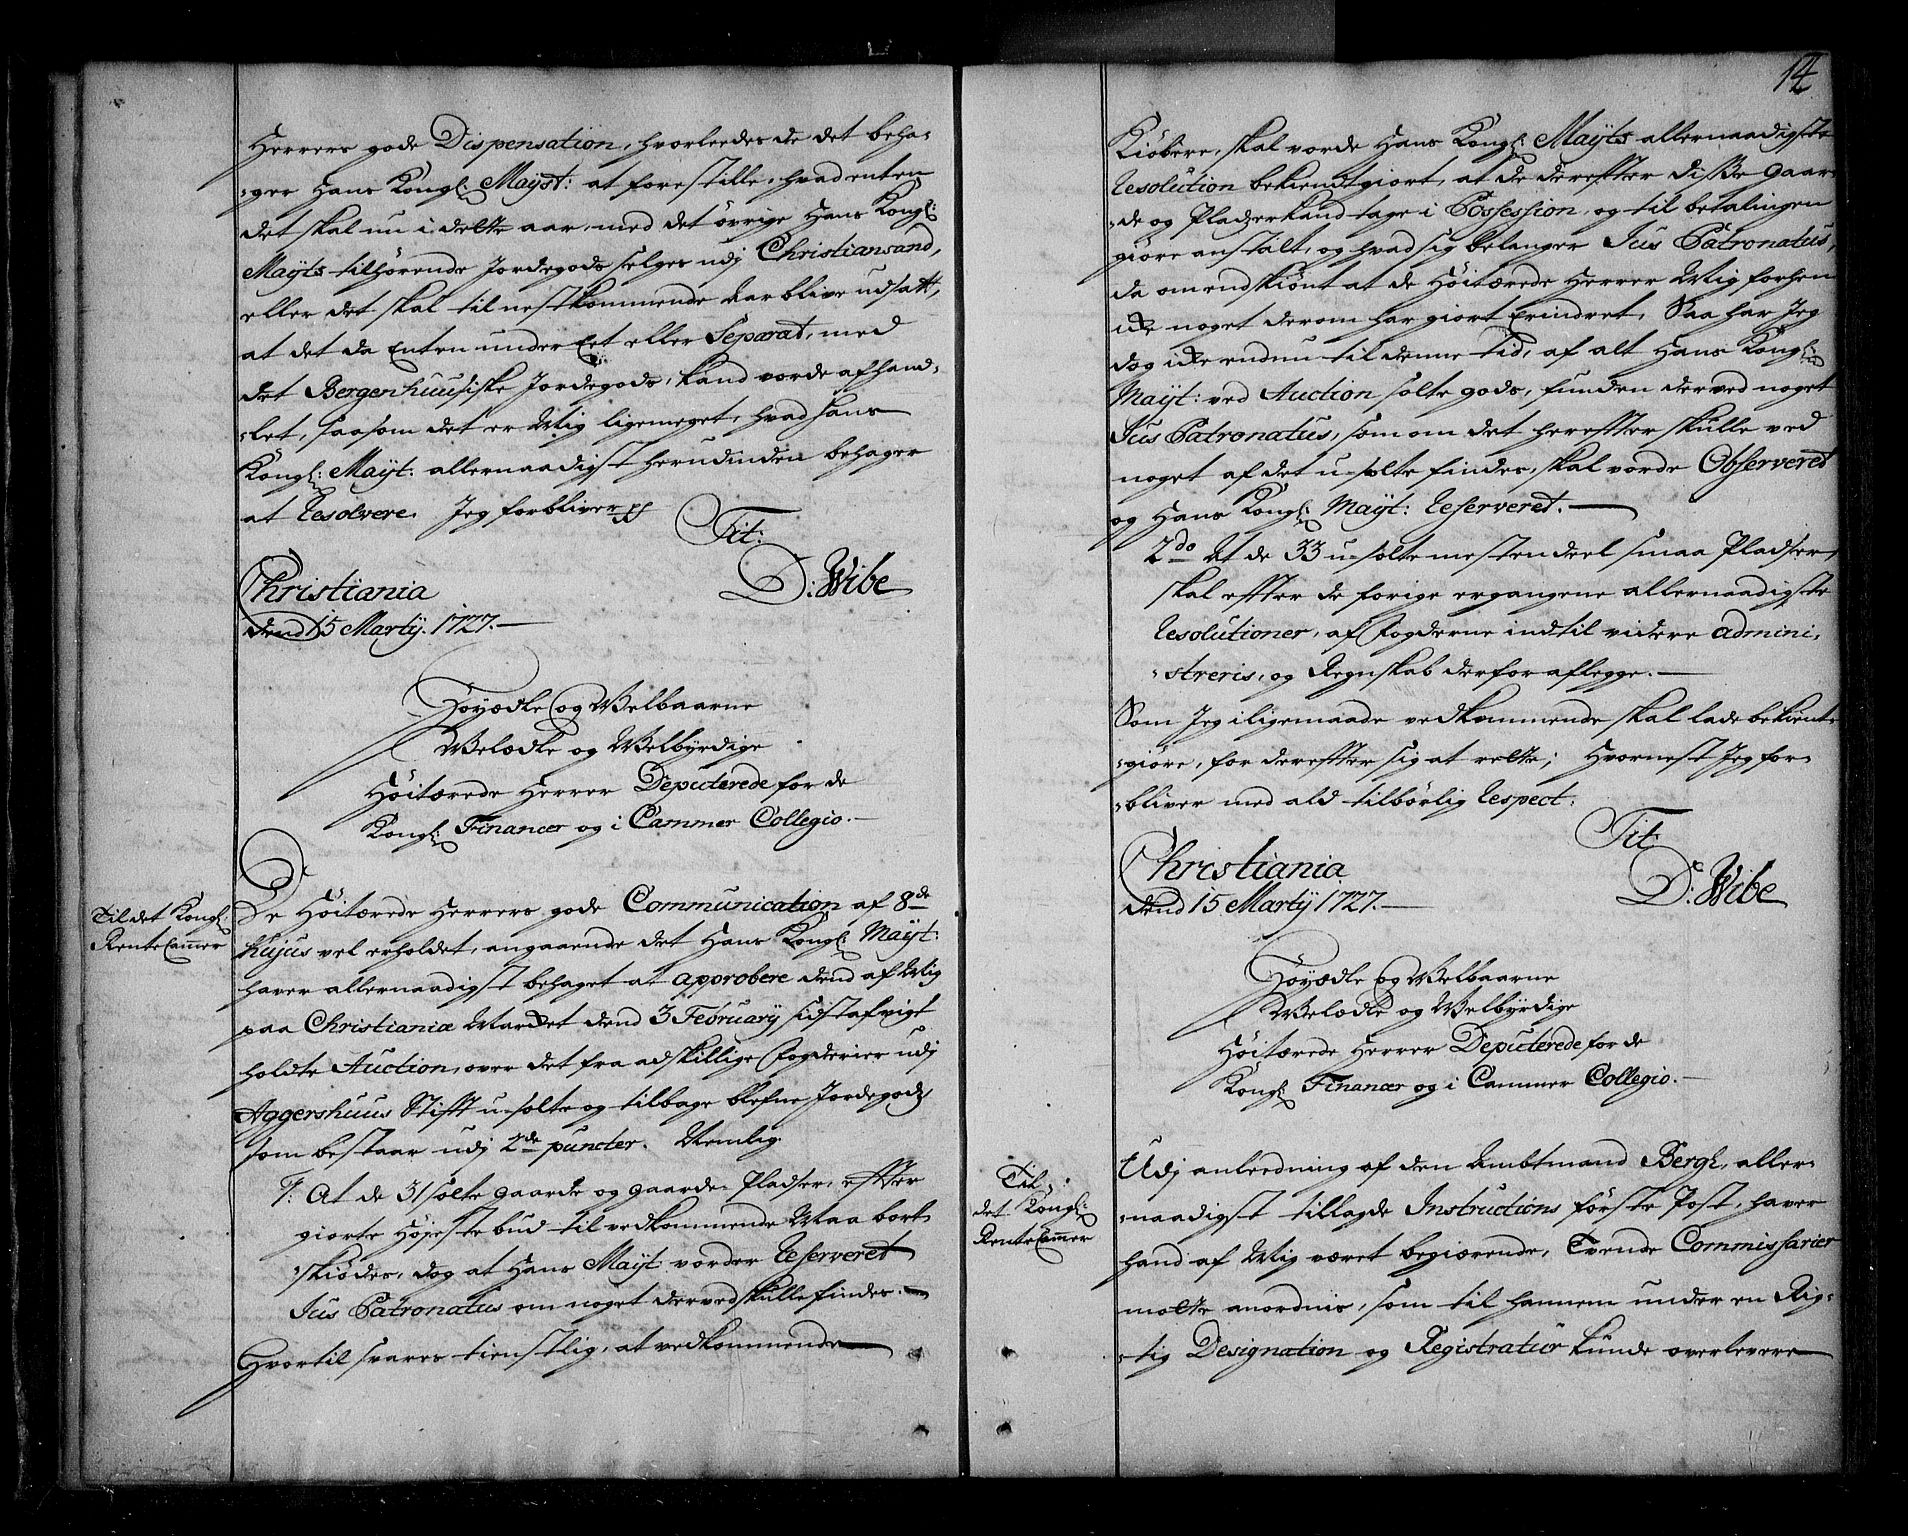 Herrers gode Dispensation, hvorleedes de det beha-
-ger Hans Kongl: Mayst: at forestille, hvad enten
det skal nu i dette aar, med det övrige Hans Kongl:
Mayts tilhörende Jordegods selges udj Christiansand,
eller det skal til nestkommende aar blive udsatt,
at det da Enten under Eet eller Separat, med
det Bergenhuusiske Jordegods, kand vorde afhand-
-let, saasom det er Mig ligemeget, hvad Hans
Kongl: Mayt: allernaadigst herudinden behager
at Resolvere. Jeg forbliver pp
Tit:
D: Wibe
Christiania
dend 15 Martij. 1727.
Höyædle og Welbaarne
Welædle og Welbyrdige
Höitærede Herrer Deputerede for de
Kongl: Financer og i Cammer Collegio.
Til det Kongl:
Rente Camer
De Höitærede Herrers gode Communication af 8de
hujus vel erholdet, angaaende det Hans Kongl: Mayt:
haver allernaadigst behaget at approbere dend af Mig
paa Christianiæ Marcket dend 3 February sidstafvigt
holdte Auction, over det fra adskillige Fogderier udj
Aggershuus Stift u-solte og tilbage blefne Jordegods
som bestaar udj 2de puncter. Nemlig
1: At de 31 solte gaarde og gaarde-Pladser, effter
giorte Höyeste bud til vedkommende Maa bort-
-skiödes, dog at Hans Mayt vorder Reserveret
Jus Patronatus om noget derved skulle findes.
Hvortil svares tienstlig, at vedkommende
14
Kiöbere, skal vorde Hans Kongl: Mayts allernaadigste
Resolution bekiendtgiort, at de dereffter disse gaar-
-de og Pladser kand tage i Possession, og til betalingen
giöre anstalt, og hvad sig belanger Jus Patronatus,
da omendskiönt at de Höitærede Herrer Mig forhen
icke noget derom har giort Erindret, Saa har Jeg
dog icke endnu til denne tid, af alt Hans Kongl:
Mayt: ved Auction solte gods, funden derved noget
Jus Patronatus, som om det hereffter skulle ved
noget af det u-solte findes, skal vorde Observeret
og Hans Kongl: Mayt: Reserveret.
2do At de 33 u-solte mestendeel smaa Pladser
skal effter de forige ergangene allernaadigste
Resolutioner, af Fogderne indtil videre admini-
-streris, og Regnskab derfor aflegge.
Som Jeg iligemaade vedkommende skal lade bekient-
-giöre, for dereffter sig at rette; Hvornest Jeg for-
-bliver med ald tilbörlig Respect.
Tit:
D: Wibe
Christiania
dend 15 Martij 1727.
Höyædle og Welbaarne
Welædle og Welbyrdige
Höitærede Herrer Deputerede for de
Kongl: Financer og i Cammer Collegio.
Til
det Kongl:
Rente Camer
Udj anleedning af den Ambtmand Bergh, aller-
-naadigst tillagde Instructions förste Post, haver
hand af Mig været begiærende, Tvende Commissarier
motte anordnis, som til hannem under en Rig-
-tig Designation og Registratur kunde overlevere